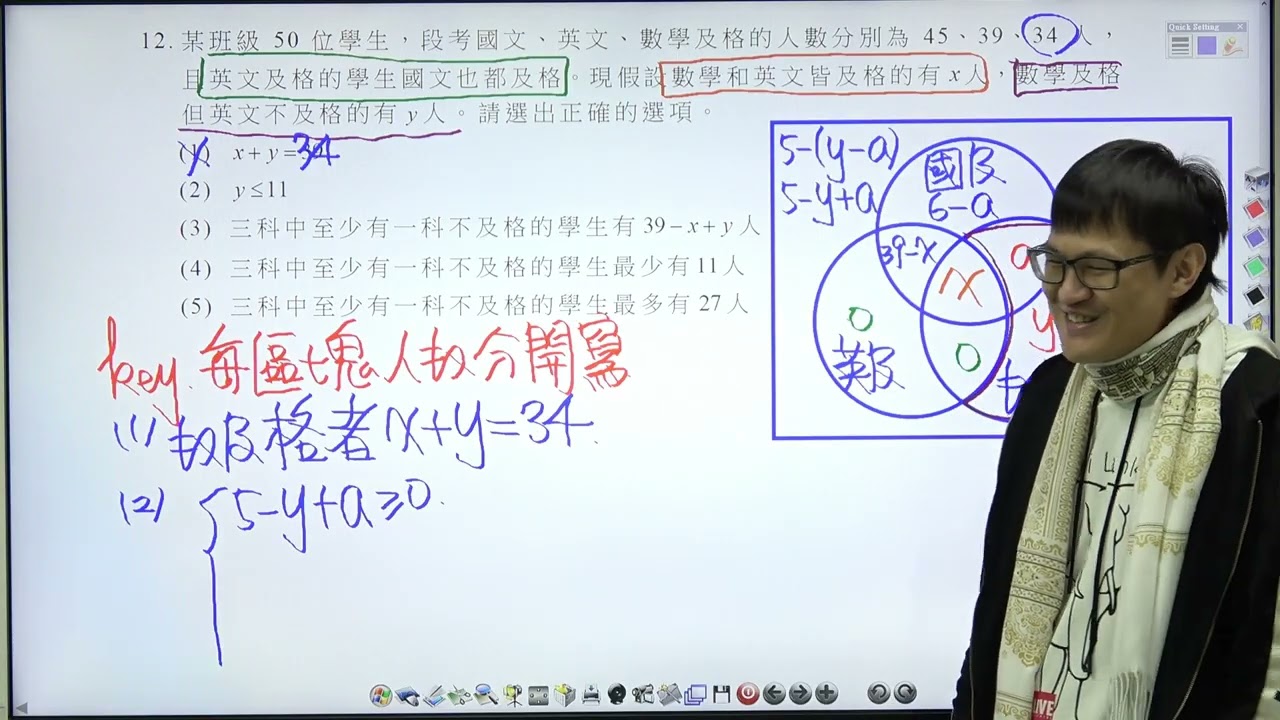 12. 某班級 50 位學生，段考國文、英文、數學及格的人數分別為 45、39、34 人，
且英文及格的學生國文也都及格。現假設數學和英文皆及格的有 x 人，數學及格
但英文不及格的有 y 人。請選出正確的選項。
(1) x+y=34
(2) y≤11
(3) 三科中至少有一科不及格的學生有 39−x+y 人
(4) 三科中至少有一科不及格的學生最少有 11 人
(5) 三科中至少有一科不及格的學生最多有 27 人
key. 每區塊人數分開寫
(1) 數及格者 x+y=34.
(2) 5-y+a≥0.
5-(y-a)
5-y+a
國及
6-a
39-x
x
a
y
0
0
英及
Quick Setting